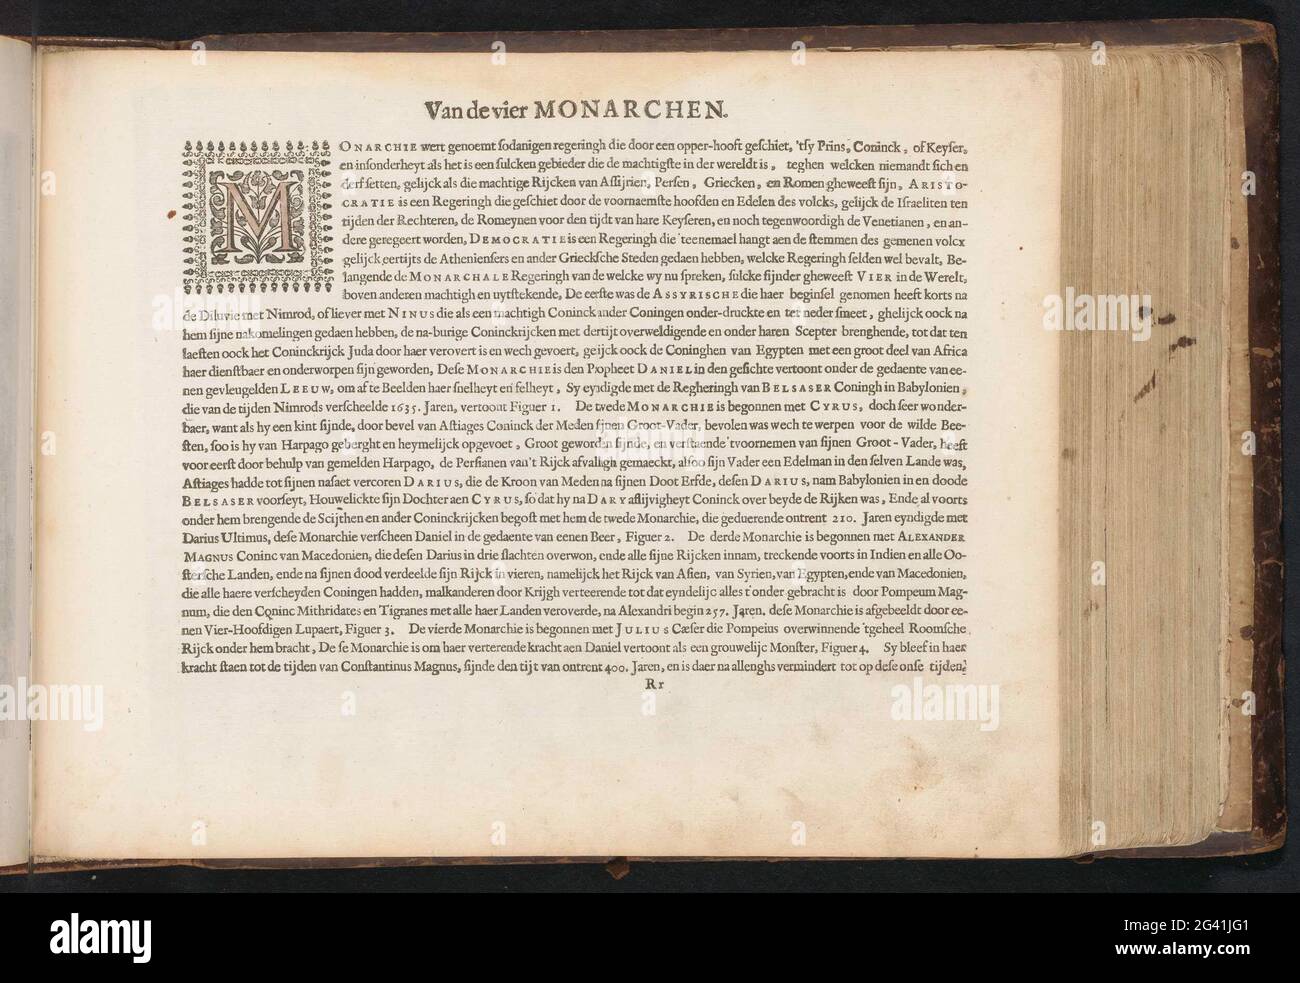 Van de vier MONARCHEN.
MONARCHIE wert genoemt sodanigen regeringh die door een opper-hooft geschiet, 'tsy Prins, Coninck, of Keyser,
en insonderheyt als het is een sulcken gebieder die de machtigste in der wereldt is, teghen welcken niemandt sich en
derf setten, gelijck als die machtige Rijcken van Assijrien, Persen, Griecken, en Romen gheweest sijn, ARISTO-
CRATIE is een Regeringh die geschiet door de voornaemste hoofden en Edelen des volcks, gelijck de Israeliten ten
tijden der Rechteren, de Romeynen voor den tijdt van hare Keyseren, en noch tegenwoordigh de Venetianen, en an-
dere geregeert worden, DEMOCRATIE is een Regeringh die 'teenemael hangt aen de stemmen des gemenen volcx
gelijck eertijts de Atheniensers en ander Griecksche Steden gedaen hebben, welcke Regeringh selden wel bevalt, Be-
langende de MONARCHALE Regeringh van de welcke wy nu spreken, sulcke sijnder gheweest VIER in de Werelt,
boven anderen machtigh en uytstekende, De eerste was de ASSYRISCHE die haer beginsel genomen heeft korts na
de Diluvie met Nimrod, of liever met NINUS die als een machtigh Coninck ander Coningen onder-druckte en ter neder smeet, ghelijck oock na
hem sijne nakomelingen gedaen hebben, de na-burige Coninckrijcken met dertijt overweldigende en onder haren Scepter brenghende, tot dat ten
laesten oock het Coninckrijck Juda door haer verovert is en wech gevoert, geijck oock de Coninghen van Egypten met een groot deel van Africa
haer dienstbaer en onderworpen sijn geworden, Dese MONARCHIE is den Propheet DANIEL in den gesichte vertoont onder de gedaente van ee-
nen gevleugelden LEEUW, om af te Beelden haer snelheyt en felheyt, Sy eyndigde met de Regheringh van BELSASER Coningh in Babylonien,
die van de tijden Nimrods verscheelde 1635. Jaren, vertoont Figuer 1. De twede MONARCHIE is begonnen met CYRUS, doch seer wonder-
baer, want als hy een kint sijnde, door bevel van Astiages Coninck der Meden sijnen Groot-Vader, bevolen was wech te werpen voor de wilde Bee-
sten, soo is hy van Harpago geberght en heymelijck opgevoet, Groot geworden sijnde, en verstaende 'tvoornemen van sijnen Groot-Vader, heeft
voor eerst door behulp van gemelden Harpago, de Persianen van't Rijck afvalligh gemaeckt, alsoo sijn Vader een Edelman in den selven Lande was,
Astiages hadde tot sijnen nasaet vercoren DARIUS, die de Kroon van Meden na sijnen Doot Erfde, desen DARIUS, nam Babylonien in en doode
BELSASER voorseyt, Houwelickte sijn Dochter aen CYRUS, so dat hy na DARY aflijvigheyt Coninck over beyde de Rijken was, Ende al voorts
onder hem brengende de Scijthen en ander Coninckrijcken begost met hem de twede Monarchie, die geduerende ontrent 210. Jaren eyndigde met
Darius Ultimus, dese Monarchie verscheen Daniel in de gedaente van eenen Beer, Figuer 2. De derde Monarchie is begonnen met ALEXANDER
MAGNUS Coninc van Macedonien, die desen Darius in drie slachten overwon, ende alle sijne Rijcken innam, treckende voorts in Indien en alle Oo-
stersche Landen, ende na sijnen dood verdeelde sijn Rijck in vieren, namelijck het Rijck van Asien, van Syrien, van Egypten, ende van Macedonien,
die alle haere verscheyden Coningen hadden, malkanderen door Krijgh verteerende tot dat eyndelijc alles t'onder gebracht is door Pompeum Mag-
num, die den Coninc Mithridates en Tigranes met alle haer Landen veroverde, na Alexandri begin 257. Jaren. dese Monarchie is afgebeeldt door ee-
nen Vier-Hoofdigen Lupaert, Figuer 3. De vierde Monarchie is begonnen met JULIUS Cæser die Pompeius overwinnende 'tgeheel Roomsche
Rijck onder hem bracht, De se Monarchie is om haer verterende kracht aen Daniel vertoont als een grouwelijc Monster, Figuer 4. Sy bleef in haer
kracht staen tot de tijden van Constantinus Magnus, sijnde den tijt van ontrent 400. Jaren, en is daer na allenghs vermindert tot op dese onse tijden.
Rr
alamy
alamy
www.alamy.com
2G41JG1